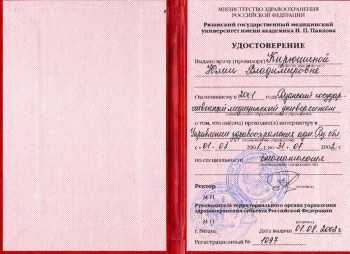 МИНИСТЕРСТВО ЗДРАВООХРАНЕНИЯ
РОССИЙСКОЙ ФЕДЕРАЦИИ
Рязанский государственный медицинский
университет имени академика И. П. Павлова
УДОСТОВЕРЕНИЕ
Выдано врачу (провизору) Кирюшиной
Юлии Владимировне
Окончившему в 2001 году Рязанский государ-
ственный медицинский университет
о том, что он(она) проходил(а) интернатуру в
Управлении здравоохранения адм. Ряз. обл.
с 01.08 2001 г. по 31.07 2002 г.
по специальности стоматология
Ректор
М.П.
Руководитель территориального органа управления
здравоохранения субъекта Российской Федерации
М.П.
г. Рязань Дата выдачи 01.08.2002 г.
Регистрационный № 1097